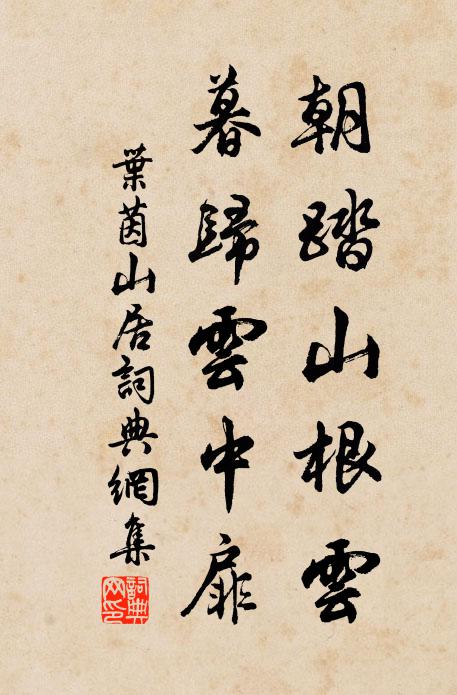 朝踏山根雲
暮歸雲中扉
葉茵山居詞典網集
詞典網印